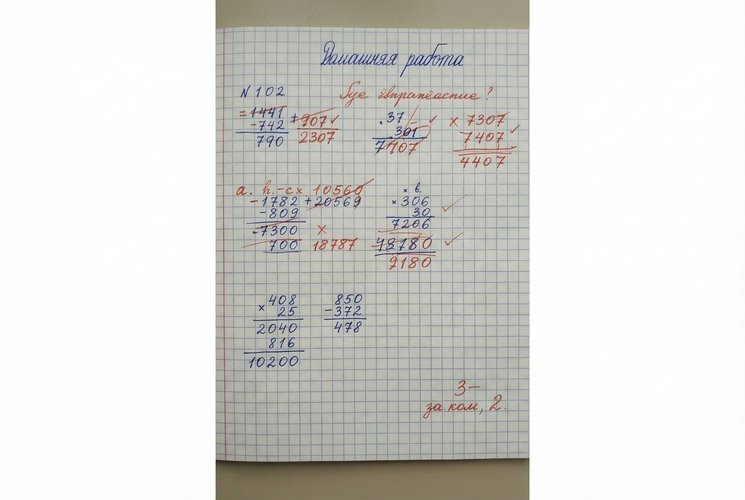 Домашняя работа
N 102
Где ?
= 1441
- 742
790
+ 907 ✓
2307
.37 – ✓
.301
7107
× 7307
7407 ✓
4407
a. h. -c × 10560
- 1782 + 20569
- 809
- 7300 ×
700 18787
× в.
× 306
30 ✓
7206
18780 ✓
9180
× 408
25
2040
816
10200
850
- 372
478
3–
за ком, 2.